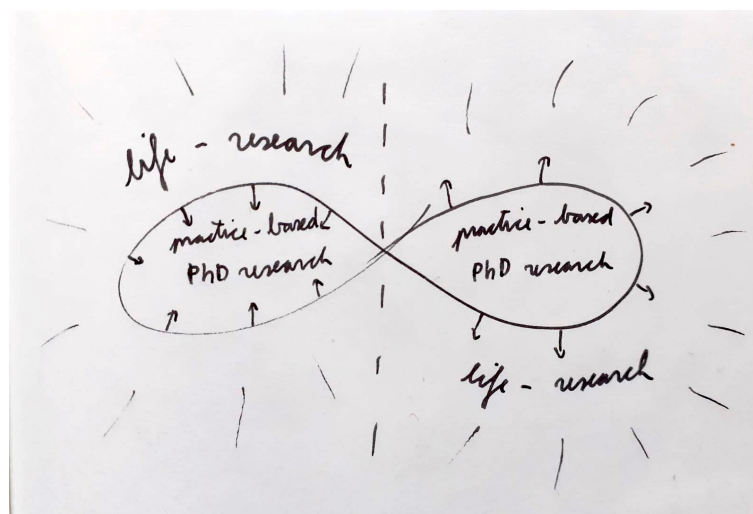 life - research
practice-based
PhD research
practice-based
PhD research
life - research